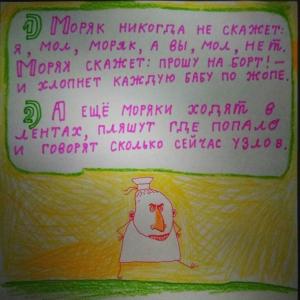 1) Моряк никогда не скажет:
я, мол, моряк, а вы, мол, нет.
Моряк скажет: прошу на борт! –
и хлопнет каждую бабу по жопе.
2) А ещё моряки ходят в
лентах, пляшут где попало
и говорят сколько сейчас узлов.